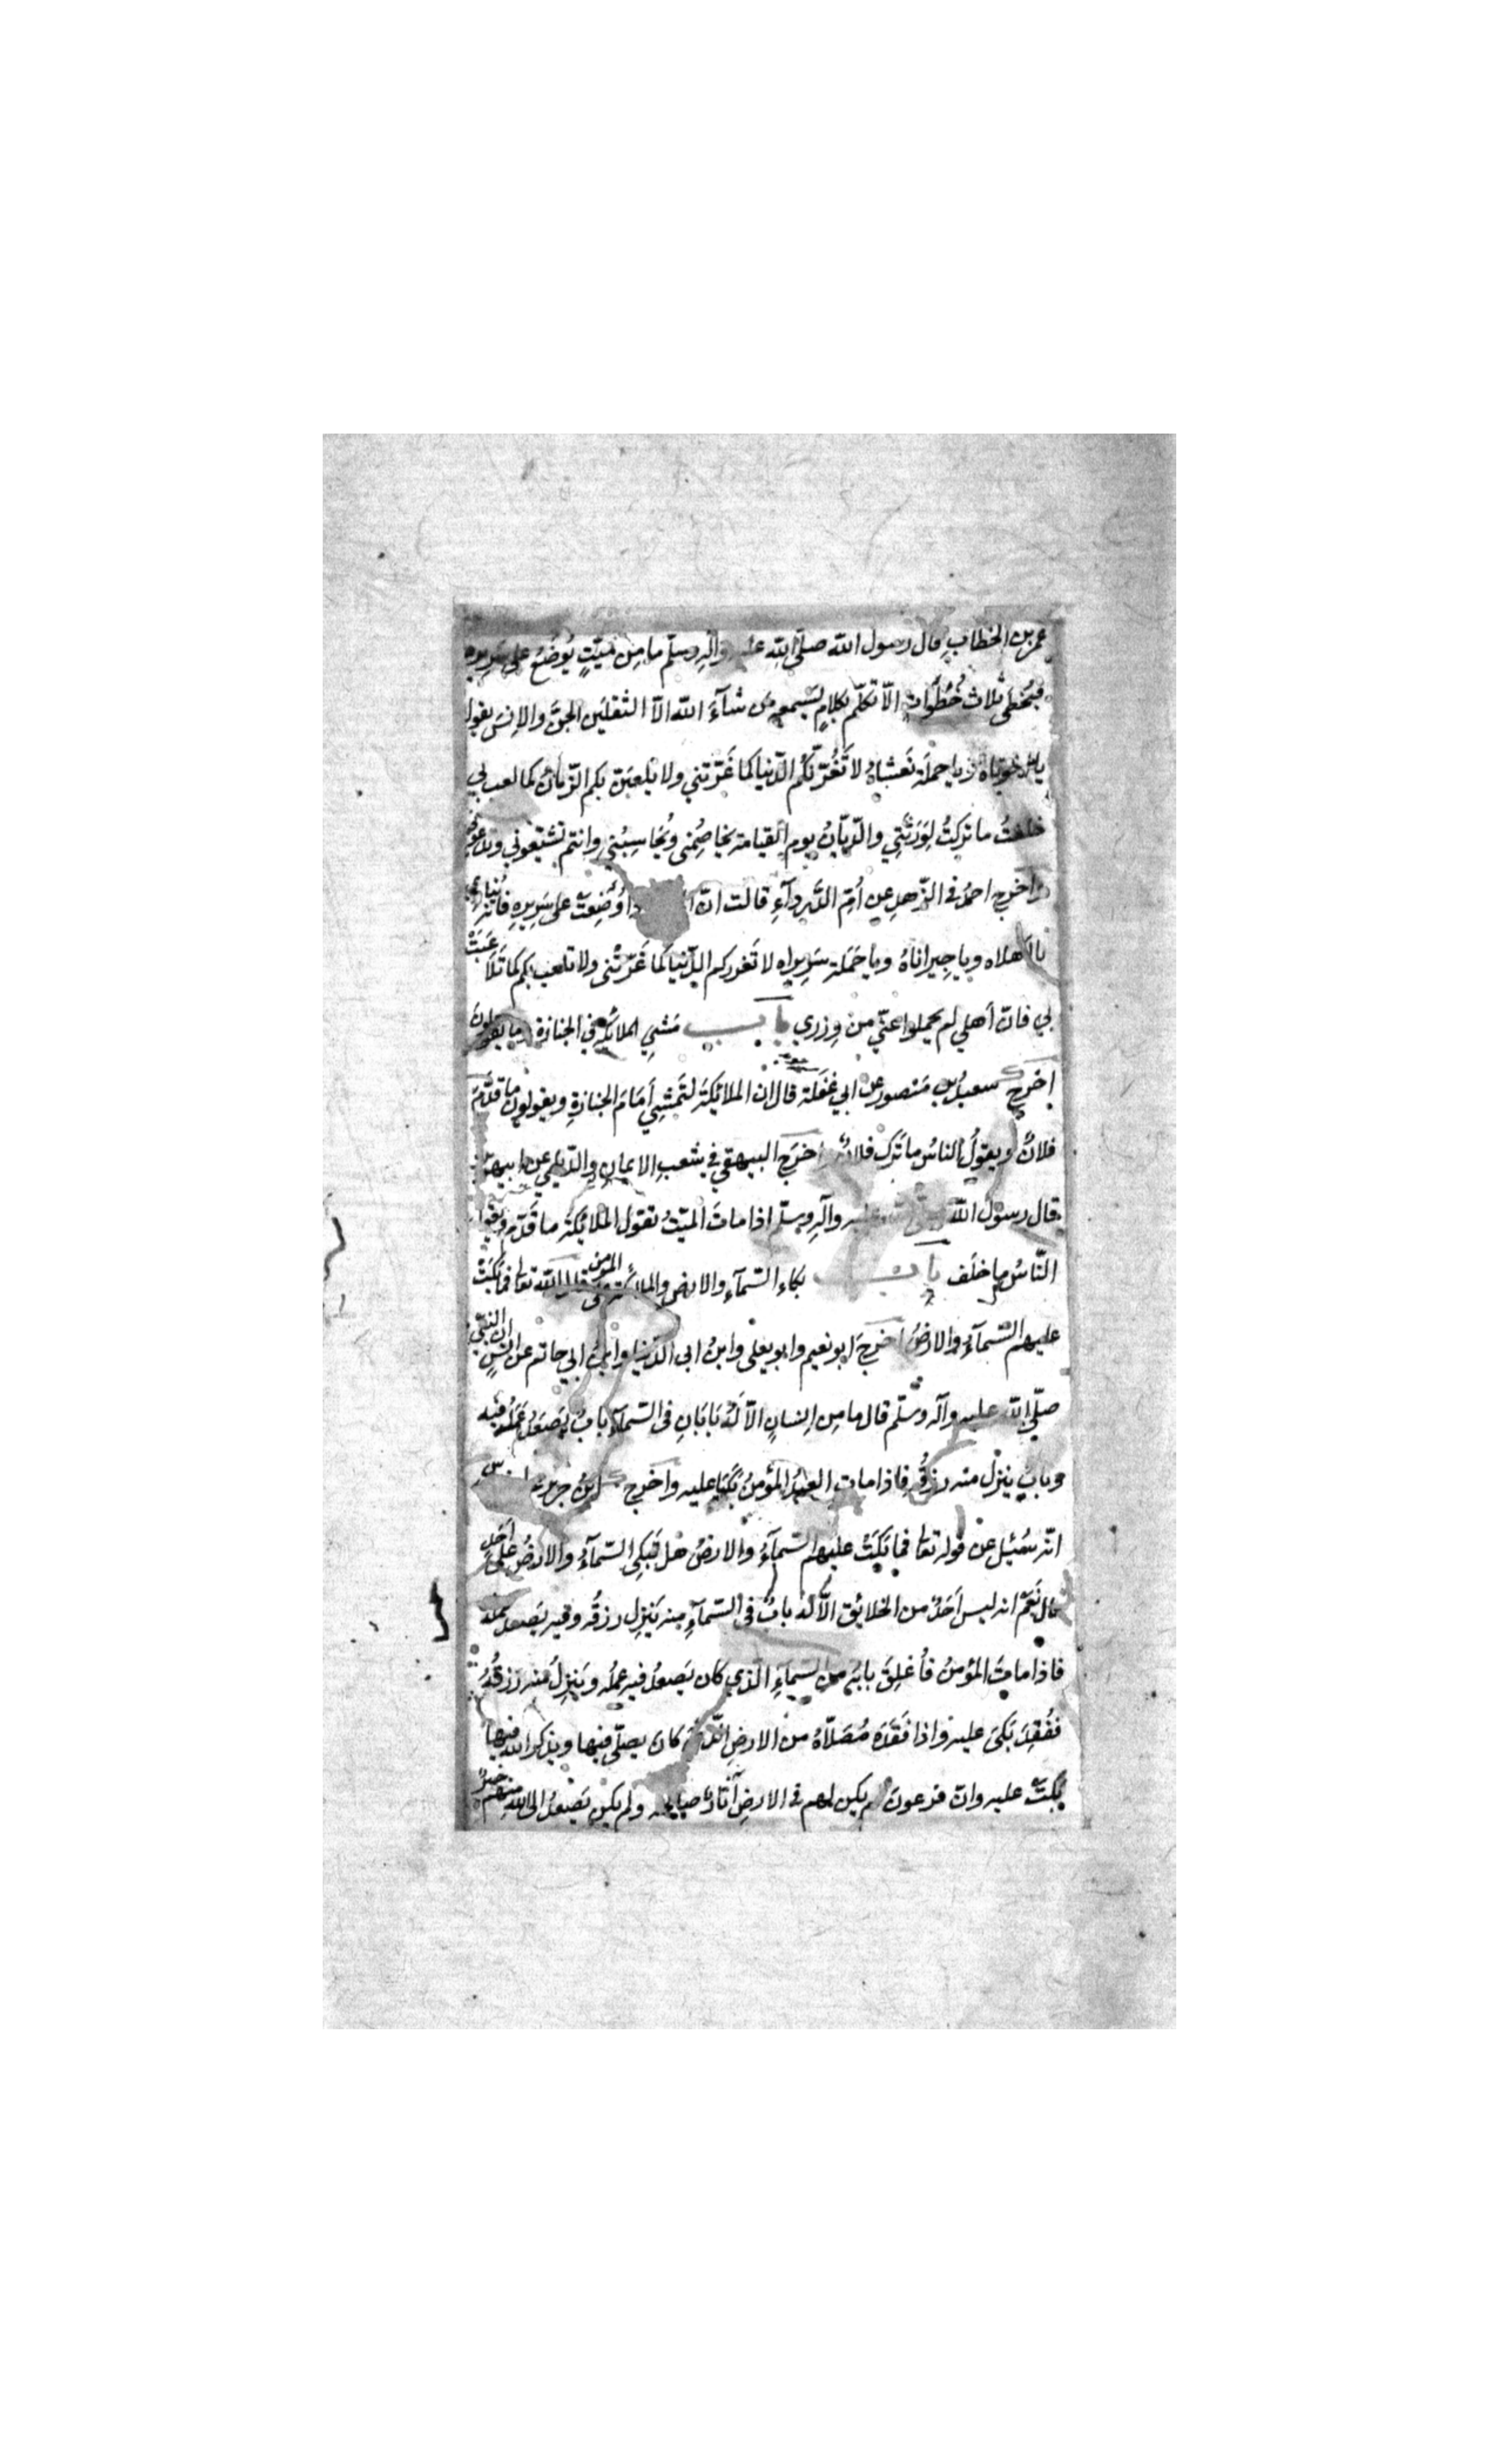 عمر بن الخطاب قال رسول الله صلّى الله عليه وآلِه وسلّم ما مِن مَيّتٍ يُوضَعُ على سَرِيرِه
فيُخطى ثلاث خُطُوات الّا تكلّم بكلامٍ يَسمعه من شآءَ الله الّا الثقلَين الجنَّ والإنسَ يقول
يا اخوتاهُ ويا حملَة نَعشاهُ لا تَغُرّنّكُم الدّنيا كما غَرّتني ولا يلعبَنّ بكم الزّمانُ كما لعب بي
خلفتُ ما تركتُ لِوَرَثَتِي والدّيّانُ يوم القيامة يخاصِمُنى ويُحاسِبُنِي وانتم تشيّعوني
واخرج احمدُ في الزّهد عن أمّ الدَّرداءِ قالت انّ اوُضِعَتْ على سَرِيرِه فانّه
يا اَهلاه ويا جِيراناهُ ويا حَمَلة سَرِيراه لا تَغرركم الدّنيا كما غَرّتْنى ولا تلعب بكم كما تَلَاعَبَتْ
بي فانّ أهلي لم يحملوا عنّي من وِزري باب مَشي الملائكة في الجنازة وما يقولونَ
اخرج سعيدُ بن مَنصور عن ابي غَفَلة قال ان الملائكةَ لتَمشِي أمَامَ الجنازةِ ويقولون ما قدَّمَ
فلانٌ ويقولُ الناسُ ما تَرَك فلانٌ واخرَج البيهقي في شعبِ الايمان والدّيلمي عن ابي هريرة
قال رسول الله صلّى الله عليه وآلِه وسلّم اذا ماتَ الميّتُ تقول الملائكةُ ما قدّم ويقول
النّاسُ ما خلَف باب بكاء السّمآء والارض والملائكة على المؤمن قال الله تعالى فما بَكَتْ
عليهم السّمآءُ والارضُ اخرجَ ابو نعيم وابو يعلى وابنُ ابى الدّنيا وابنُ ابي حاتم عن انسٍ ان النبيّ
صلّى الله عليه وآله وسلّم قال ما مِن إنسانٍ الّا لَهُ بَابَانِ فى السّمآءِ بابٌ يَصعَدُ عَمَلُه فيه
وبابٌ ينزلُ منه رزقُه فاذا مات العبدُ المؤمنُ بَكَيا عليه واخرج ابنُ جرير
انّه سُئِل عن قوله تعالى فما بَكَتْ عليهم السّمآءُ والارضُ هل تَبكِي السّمآءُ والارضُ على أحَدٍ
قال نَعَم انه ليس أحَدٌ من الخلائق الّا له بابٌ فى السّمآءِ منه يَنزل رزقُه وفيه يَصعد عملُه
فاذا ماتَ المؤمنُ فأُغلِقَ بابُه من السّمآءِ الّذي كان يَصعدُ فيه عملُه ويَنزِلُ منه رزقُهُ
ففُقِدَ بَكى عليه واذا فَقَدَه مُصَلّاهُ من الارضِ الّتي كانَ يصلّي فيها ويذكر الله فيها
بَكتْ عليه وانّ فرعونَ لم يكن لهم في الارضِ آثارٌ صالحة ولم يكن يَصعدُ الى الله منهم خيرٌ